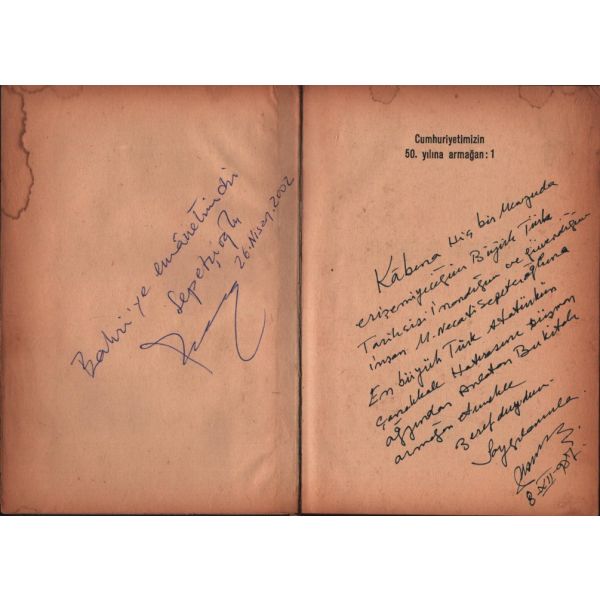 Bahri'ye emânetimdir
Sepetçioğlu
26.Nisan.2002
Cumhuriyetimizin
50. yılına armağan: 1
Kâbına Hiç bir Mevzuda
erişemiyeceğim Büyük Türk
Tarihçisi İnandığım ve güvendiğim
İnsan M. Necati Sepetcioğluna
En büyük Türk Atatürkün
Çanakkale Hatırasını Düşman
ağzından Anlatan Bu kitabı
armağan etmekle
Şeref duydum.
Saygılarımla.
8-XII-